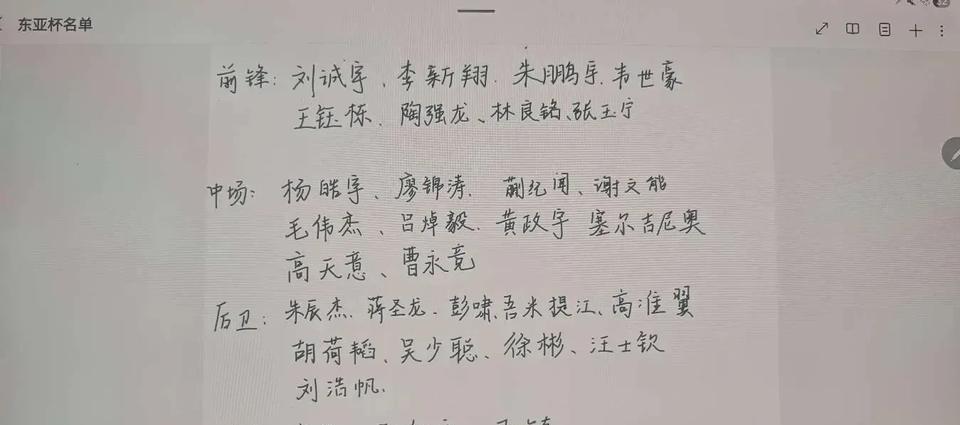 东亚杯名单
前锋：刘诚宇、李新翔、朱鹏宇、韦世豪
王钰栋、陶强龙、林良铭、张玉宁
中场：杨皓宇、廖锦涛、蒯纪闻、谢文能
毛伟杰、吕焯毅、黄政宇 塞尔吉尼奥
高天意、曹永竞
后卫：朱辰杰、蒋圣龙、彭啸、吾米提江、高准翼
胡荷韬、吴少聪、徐彬、汪士钦
刘浩帆、